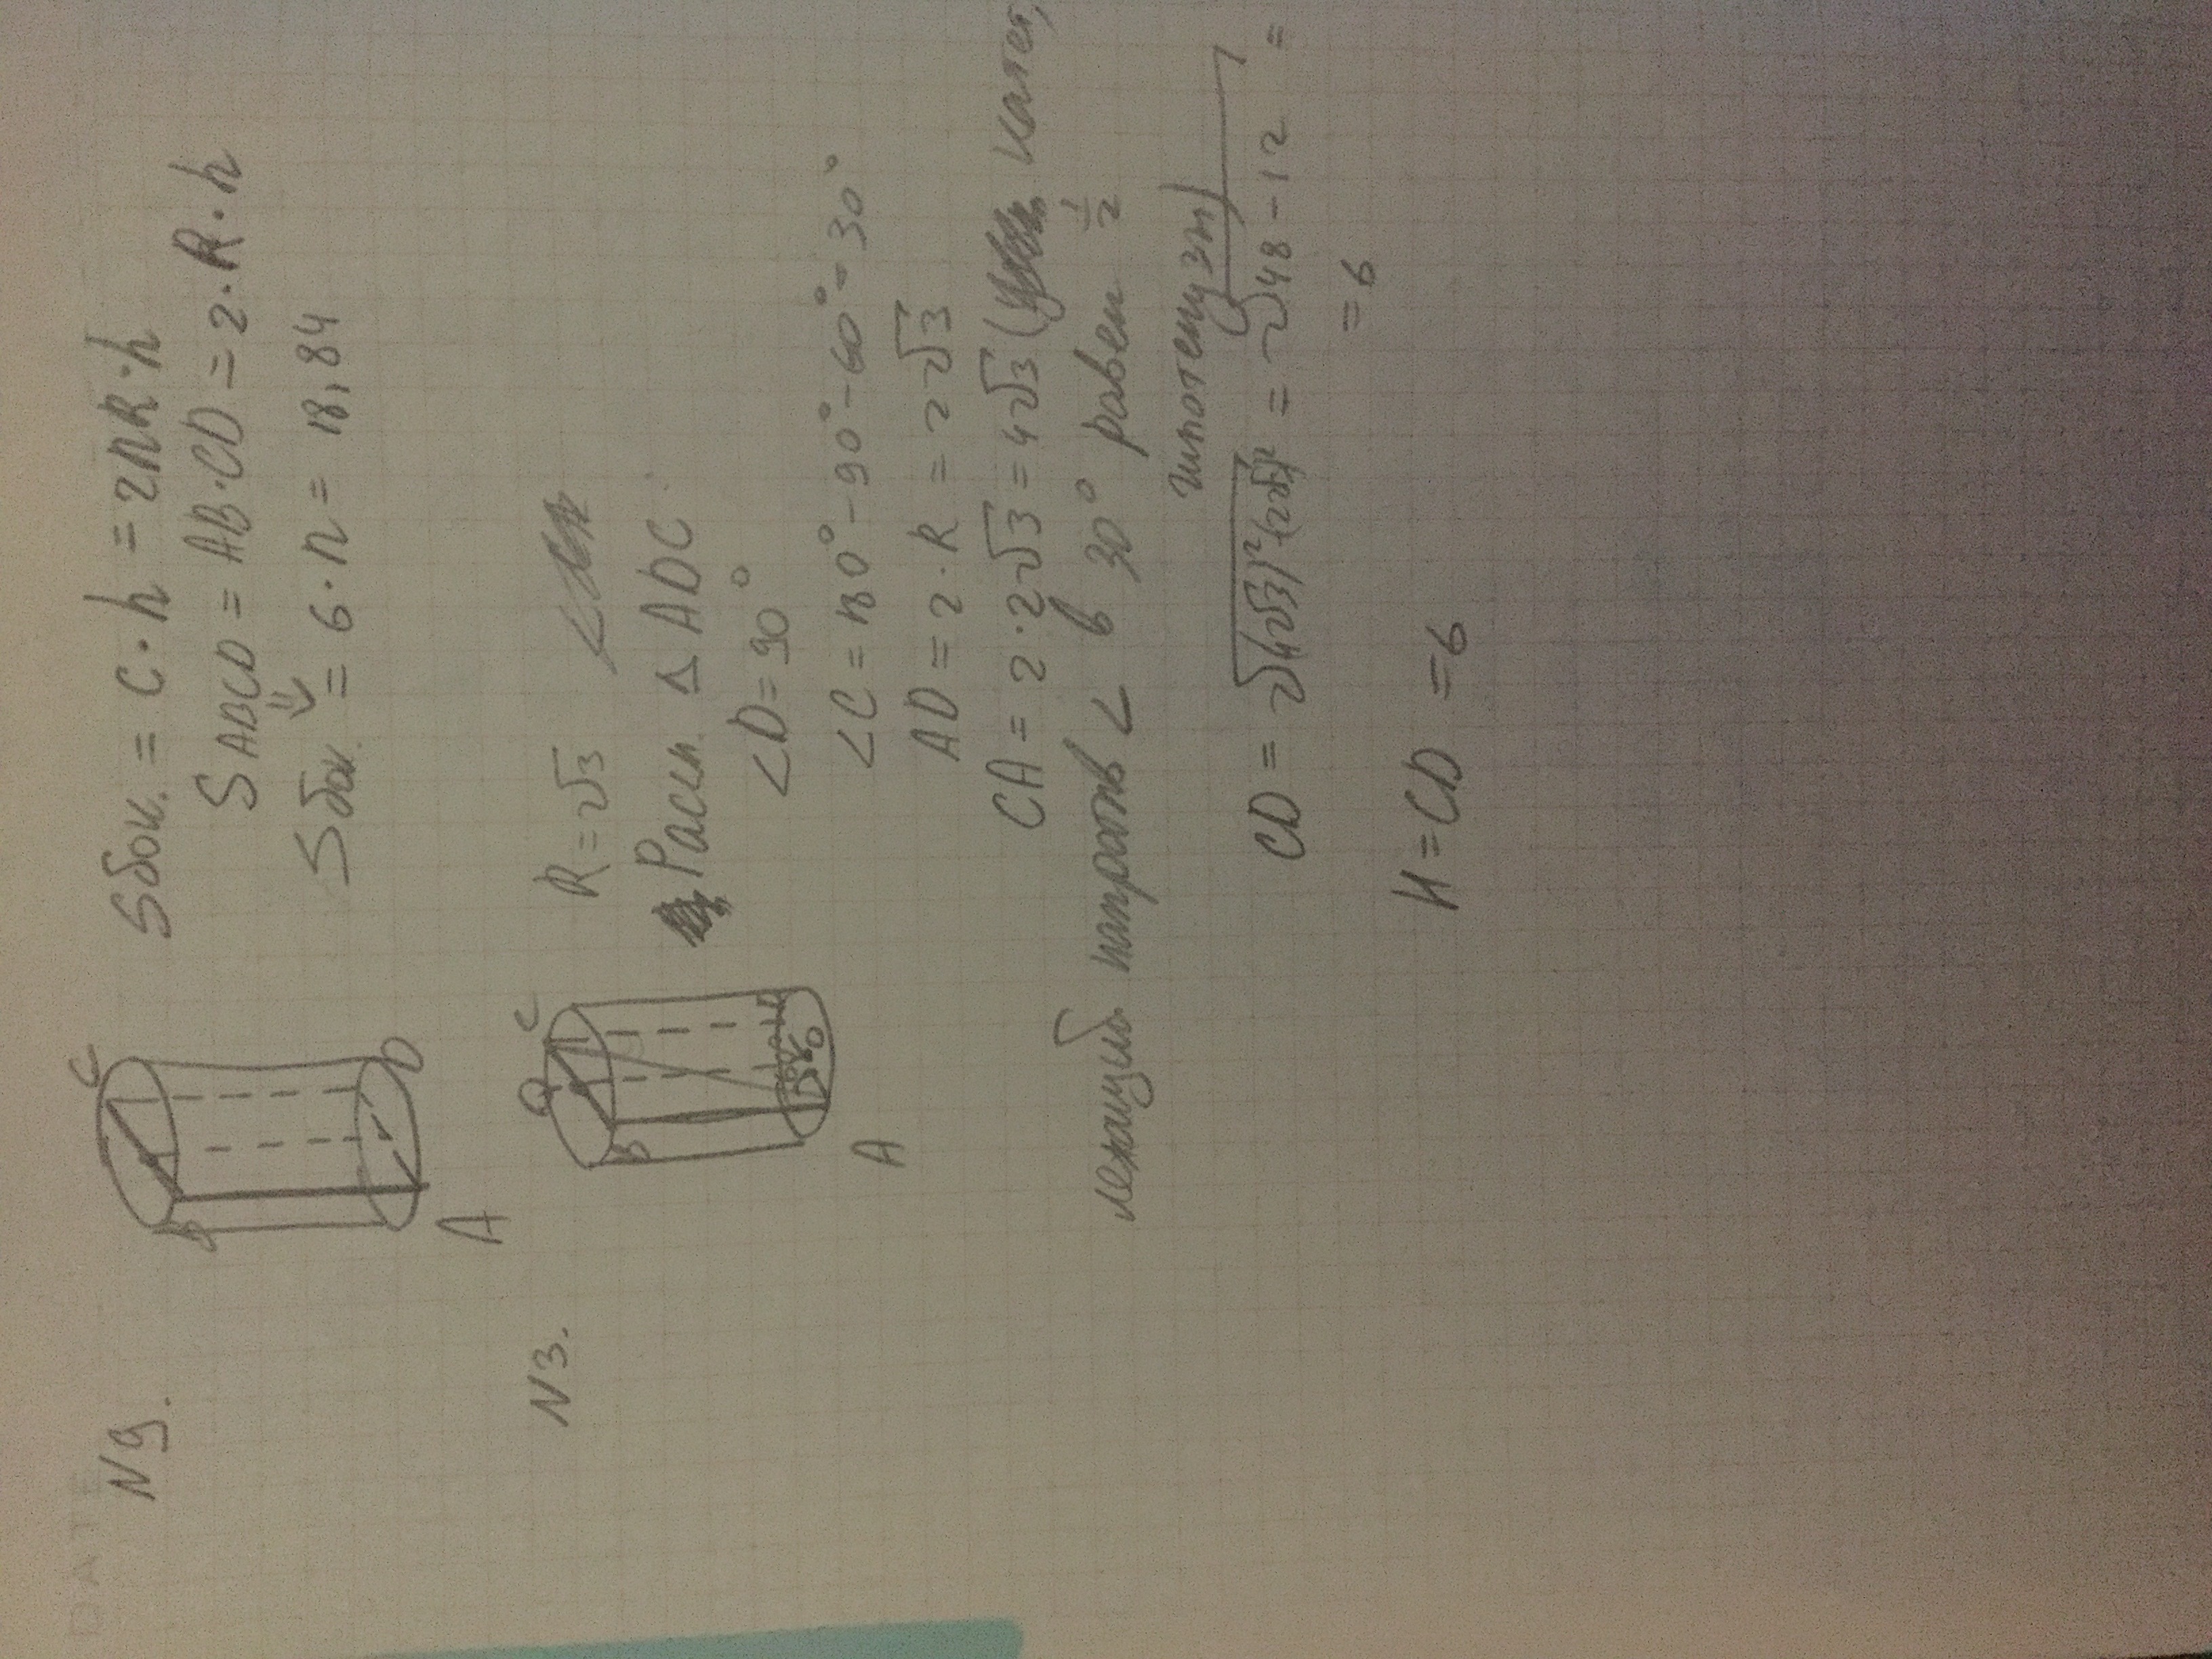 DATE
N9.
C
B
D
A
Sбок. = C · h = 2πR · h
S ABCD = AB · CD = 2 · R · h
⇓
Sбок. = 6 · π = 18,84
N3.
C
O
B
A
R = √3
Расси. Δ ADC.
∠D = 90°
∠C = 180° - 90° - 60° = 30°
AD = 2 · R = 2√3
CA = 2 · 2√3 = 4√3 ( катет,
лежащий напротив ∠ в 30° равен 1/2
гипотенузы)
CD = √(4√3)² - (2√3)² = √48 - 12 =
= 6
H = CD = 6